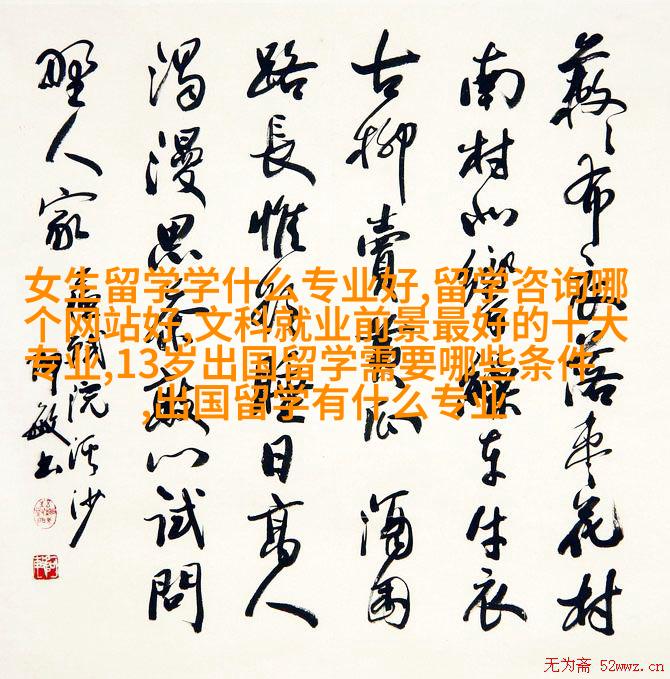 落枣花村
南村北響繰車牛衣
古柳賣黃瓜 酒困
路長惟欲睡日高人
渴漫思茶敲門試問
野人家 蘇軾浣溪沙
女生留学学什么专业好,留学咨询哪
个网站好,文科就业前景最好的十大
专业,13岁出国留学需要哪些条件
,出国留学有什么专业
无为斋 52wwz.cn